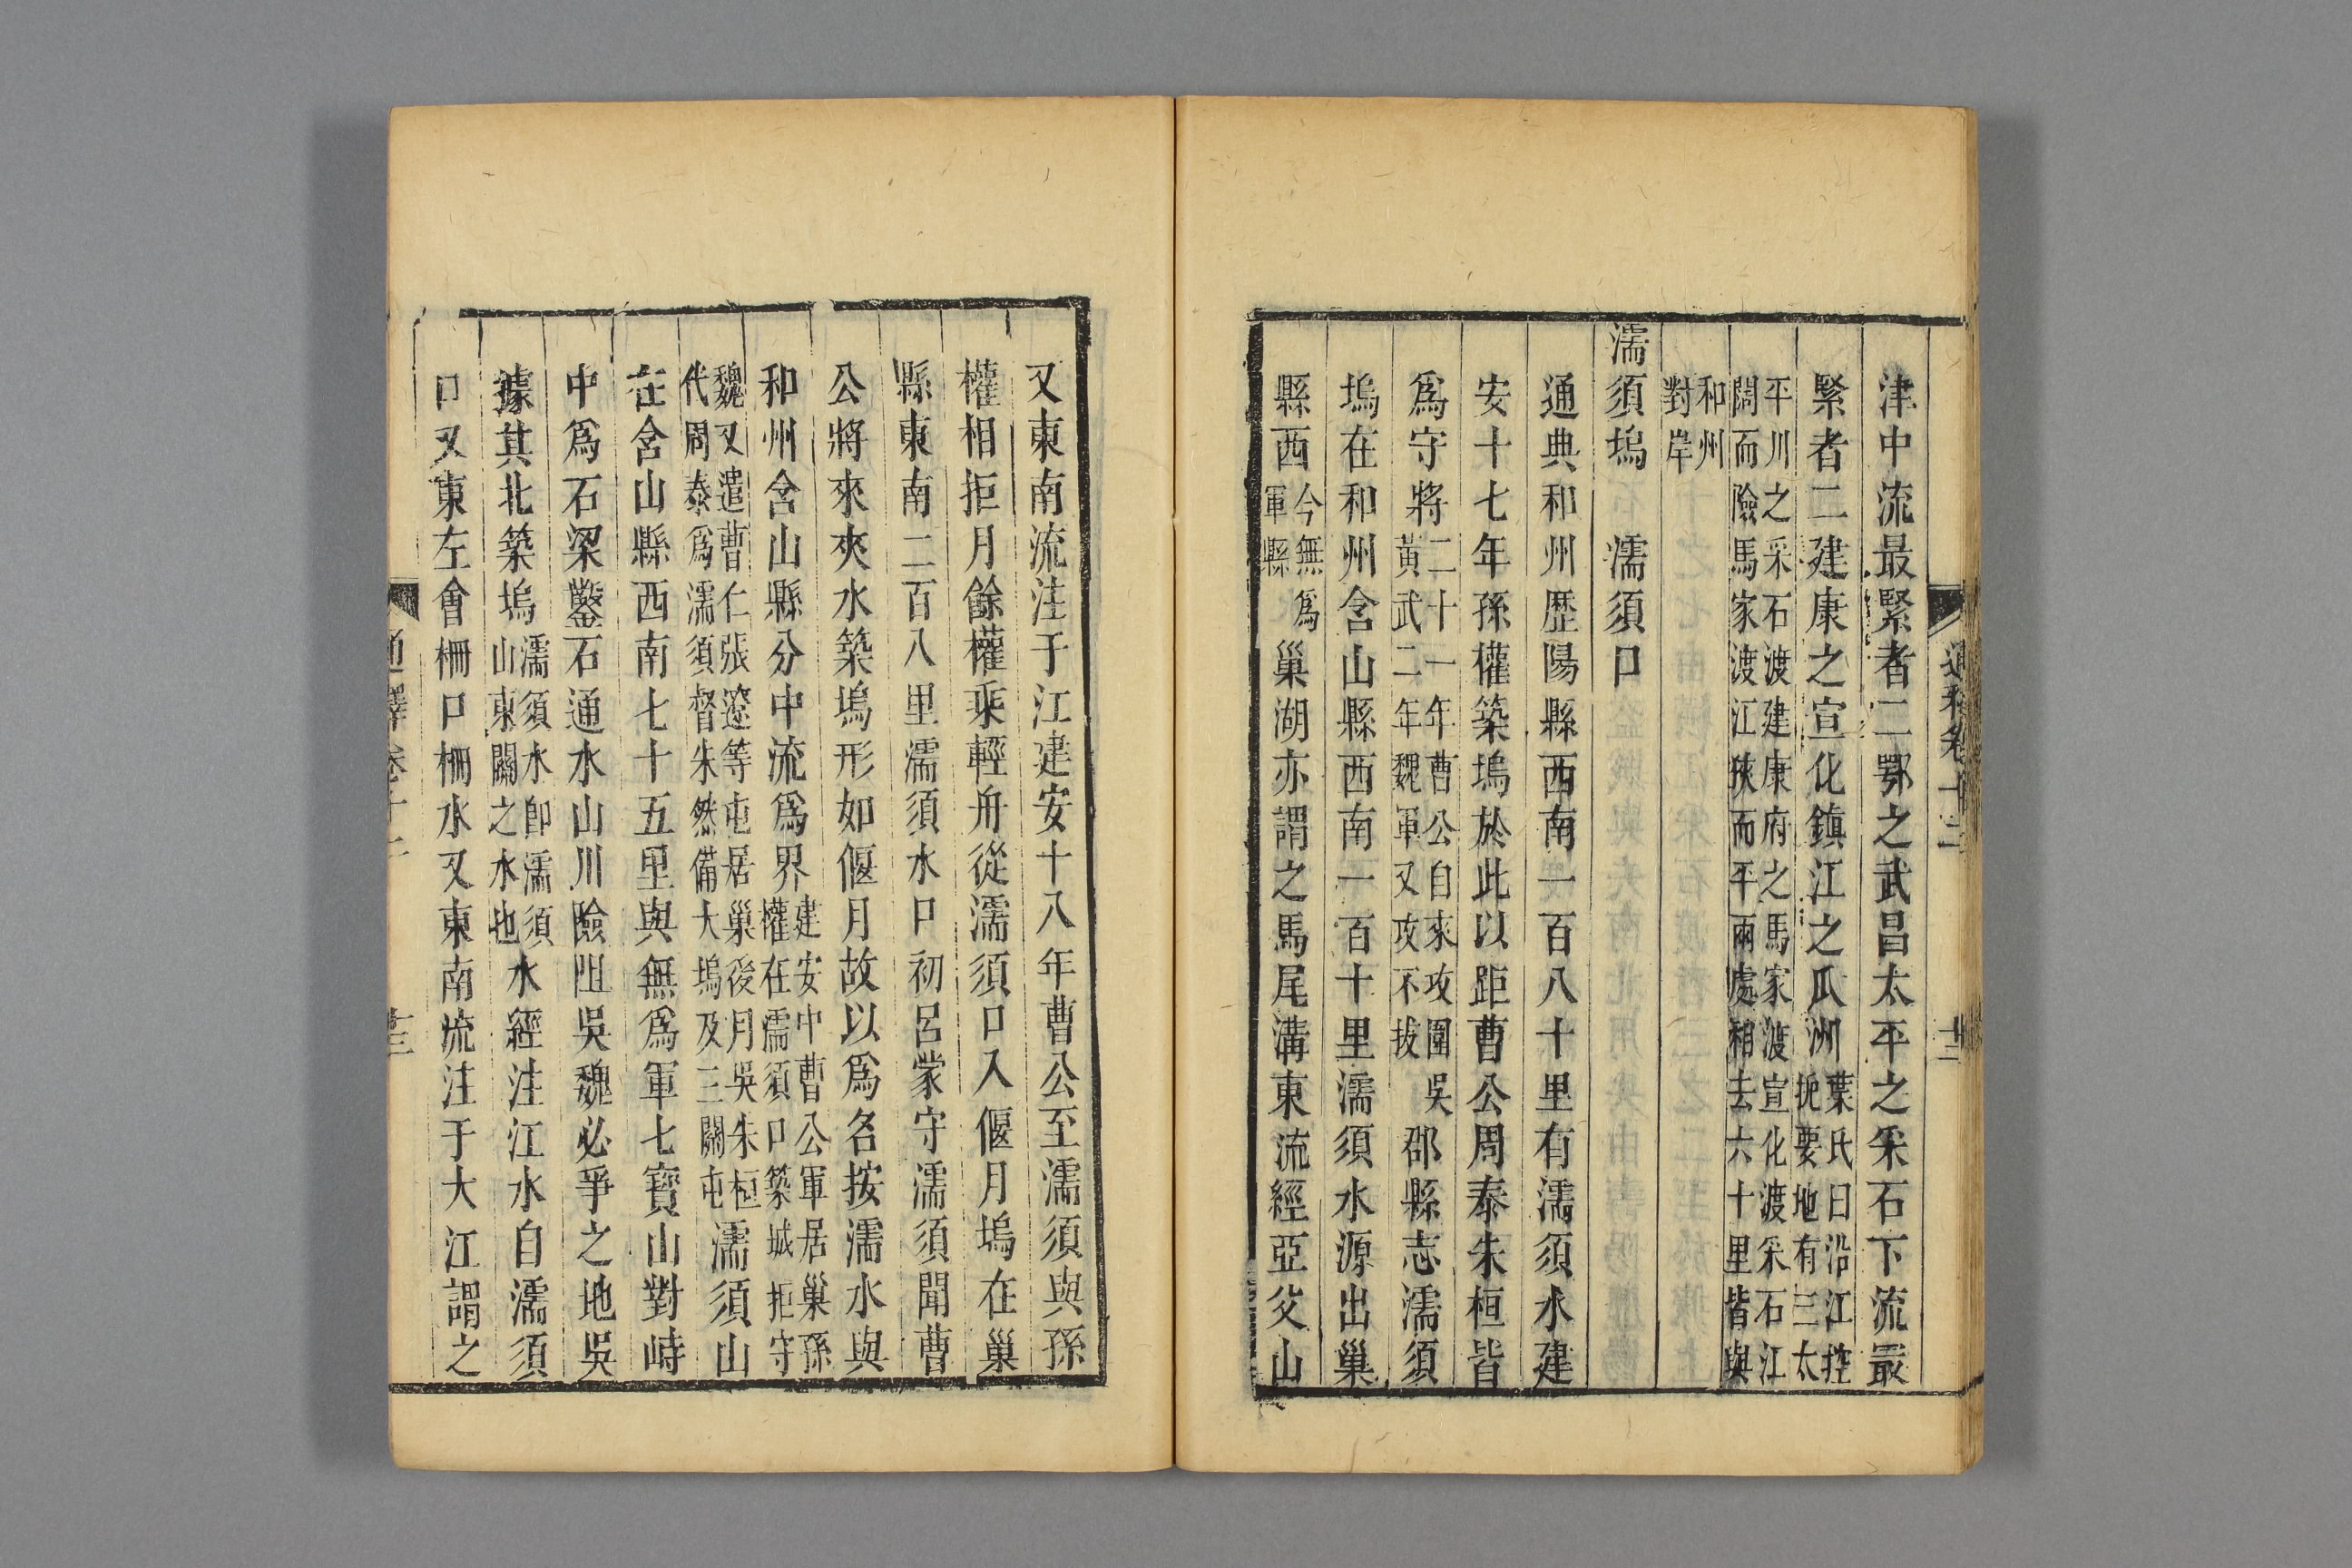 津中流最緊者二鄂之武昌太平之采石下流最
緊者二建康之宣化鎮江之瓜洲葉氏曰沿江控扼要地有三太
平川之采石渡建康府之馬家渡宣化渡采石江闊而險馬家渡江狹而平兩處相去六十里皆與
和州對岸
濡須塢　濡須口
通典和州歷陽縣西南一百八十里有濡須水建
安十七年孫權築塢於此以距曹公周泰朱桓皆
爲守將二十一年曹公自來攻圍吳黃武二年魏軍又攻不拔郡縣志濡須
塢在和州含山縣西南一百十里濡須水源出巢
縣西今無爲軍縣巢湖亦謂之馬尾溝東流經亞父山
又東南流注于江建安十八年曹公至濡須與孫
權相拒月餘權乘輕舟從濡須口入偃月塢在巢
縣東南二百八里濡須水口初呂蒙守濡須聞曹
公將來夾水築塢形如偃月故以爲名按濡水與
和州含山縣分中流爲界建安中曹公軍居巢孫權在濡須口築城拒守
魏又遣曹仁張遼等屯居巢後月吳朱桓代周泰爲濡須督朱然備大塢及三關屯濡須山
在含山縣西南七十五里與無爲軍七寶山對峙
中爲石梁鑿石通水山川險阻吳魏必爭之地吳
據其北築塢濡須水卽濡須山東關之水也水經注江水自濡須
口又東左會柵口柵水又東南流注于大江謂之
通釋卷十二
十三